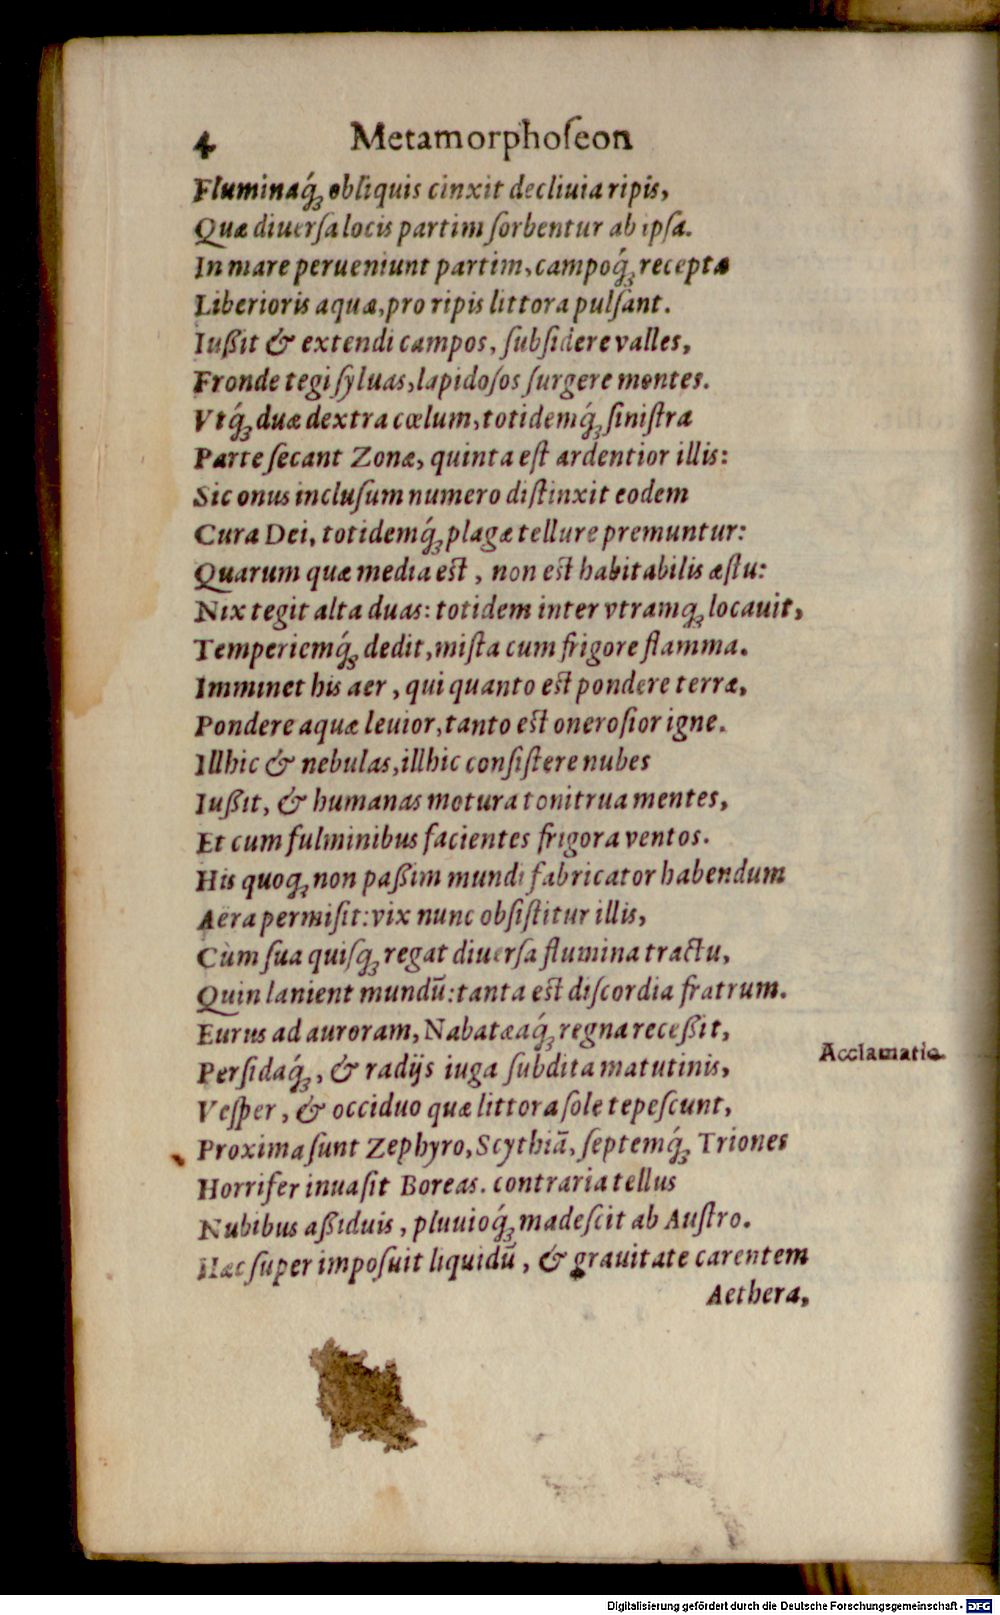 4 Metamorphoſeon
Fluminaq́ꝫ obliquis cinxit decliuia ripis,
Quæ diuerſa locis partim ſorbentur ab ipſa.
In mare perueniunt partim, campoq́ꝫ recepta
Liberioris aquæ, pro ripis littora pulſant.
Iußit & extendi campos, ſubſidere valles,
Fronde tegi ſyluas, lapidoſos ſurgere montes.
Vtq́ꝫ duæ dextra cœlum, totidemq́ꝫ ſiniſtra
Parte ſecant Zonæ, quinta eſt ardentior illis:
Sic onus incluſum numero diſtinxit eodem
Cura Dei, totidemq́ꝫ plagæ tellure premuntur:
Quarum quæ media eſt, non eſt habitabilis æſtu:
Nix tegit alta duas: totidem inter vtramqꝫ locauit,
Temperiemq́ꝫ dedit, miſta cum frigore flamma.
Imminet his aer, qui quanto eſt pondere terræ,
Pondere aquæ leuior, tanto eſt oneroſior igne.
Illhic & nebulas, illhic conſiſtere nubes
Iußit, & humanas motura tonitrua mentes,
Et cum fulminibus facientes frigora ventos.
His quoqꝫ non paßim mundi fabricator habendum
Aëra permiſit: vix nunc obſiſtitur illis,
Cùm ſua quiſqꝫ regat diuerſa flumina tractu,
Quin lanient mundū: tanta eſt diſcordia fratrum.
Eurus ad auroram, Nabatæaq́ꝫ regna receßit,
Perſidaq́ꝫ, & radijs iuga ſubdita matutinis,
Acclamatio.
Veſper, & occiduo quæ littora ſole tepeſcunt,
Proxima ſunt Zephyro, Scythiā, ſeptemq́ꝫ Triones
Horrifer inuaſit Boreas. contraria tellus
Nubibus aßiduis, pluuioq́ꝫ madeſcit ab Auſtro.
Hæc ſuper impoſuit liquidū, & grauitate carentem
Aethera,
Digitalisierung gefördert durch die Deutsche Forschungsgemeinschaft - DFG